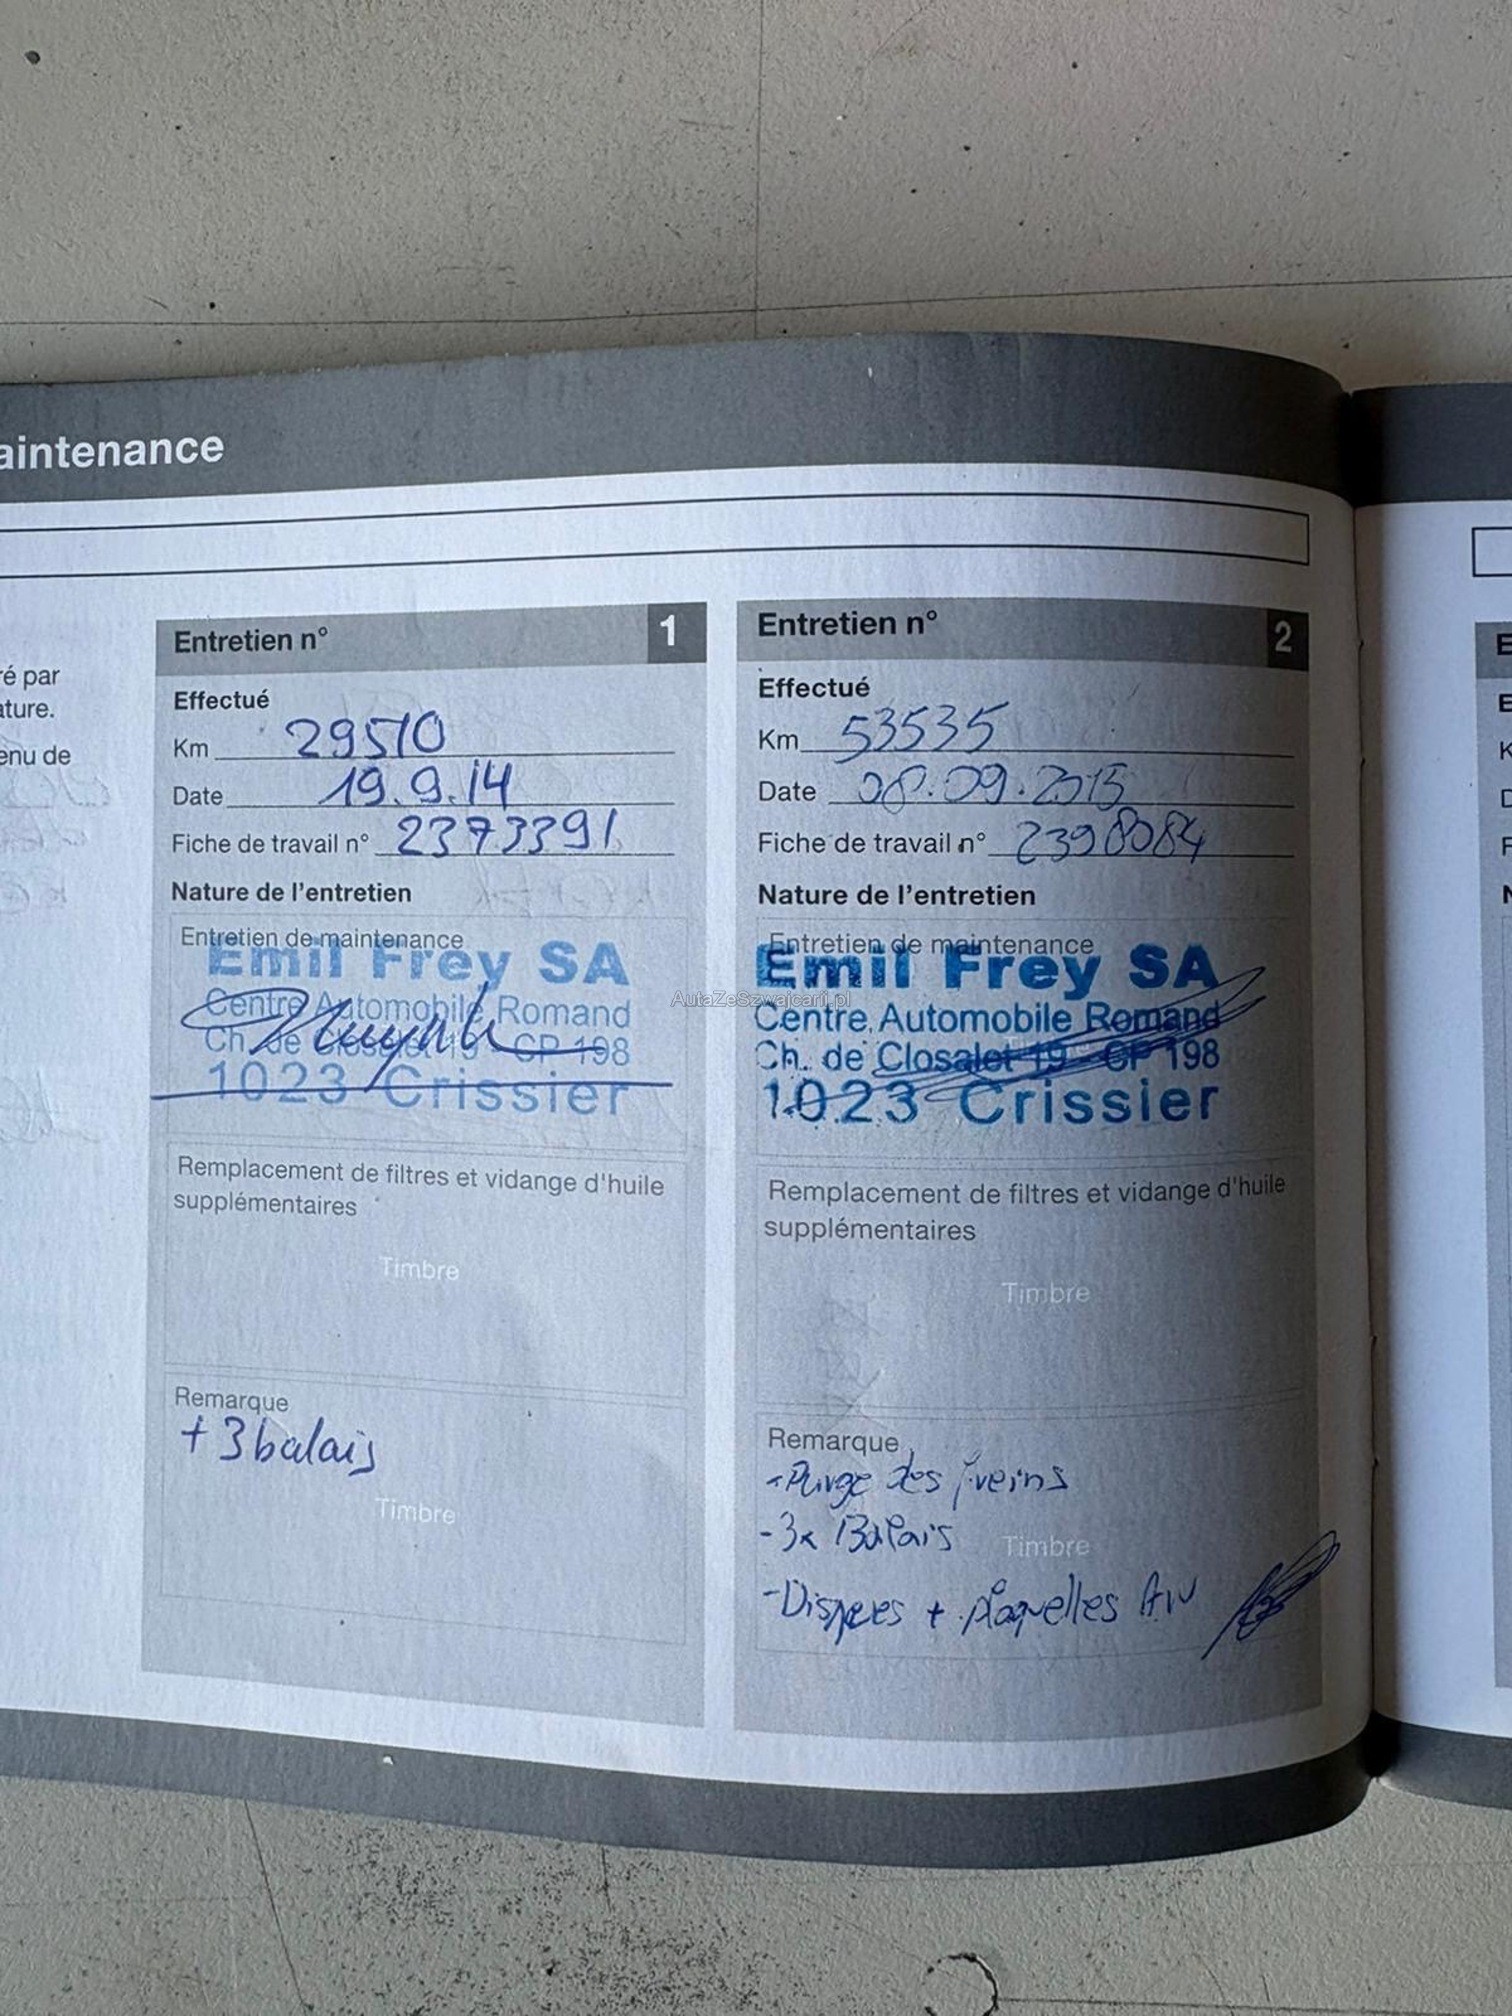 aintenance
ré par
ature.
enu de
Entretien n° 1
Effectué
Km 29510
Date 19.9.14
Fiche de travail n° 2373391
Nature de l'entretien
Entretien de maintenance
Emil Frey SA
Centre Automobile Romand
Ch. de Closalet 19 - CP 198
1023 Crissier
Remplacement de filtres et vidange d'huile
supplémentaires
Timbre
Remarque
+ 3 balais
Timbre
Entretien n° 2
Effectué
Km 53535
Date 08.09.2015
Fiche de travail n° 2398084
Nature de l'entretien
Entretien de maintenance
Emil Frey SA
Centre Automobile Romand
Ch. de Closalet 19 - CP 198
1023 Crissier
Remplacement de filtres et vidange d'huile
supplémentaires
Timbre
Remarque
- Purge des freins
- 3x Balais
Timbre
- Disques + plaquettes AV
AutaZeSzwajcarii.pl